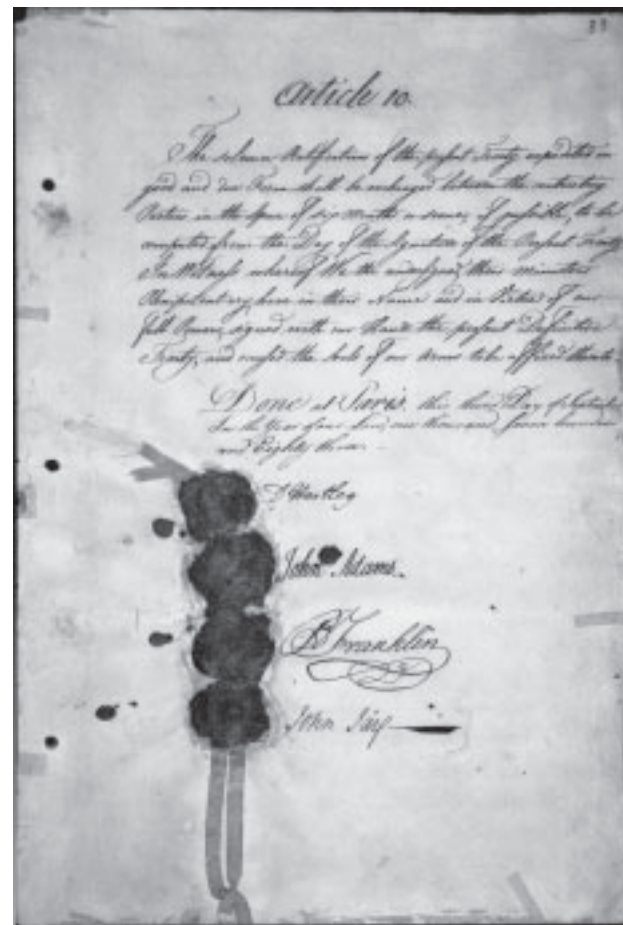 Article 10.
The solemn Ratifications of the present Treaty expedited in
good and due Form shall be exchanged between the contracting
Parties in the Space of six months or sooner if possible, to be
computed from the Day of the Signature of the present Treaty
In Witness whereof We the undersigned their ministers
Plenipotentiary have in their Name and in Virtue of our
full Powers, signed with our Hands the present Definitive
Treaty, and caused the Seals of our Arms to be affixed thereto.
Done at Paris, this third Day of September
In the Year of our Lord, one thousand seven hundred
and Eighty three.
D Hartley
John Adams.
B Franklin
John Jay